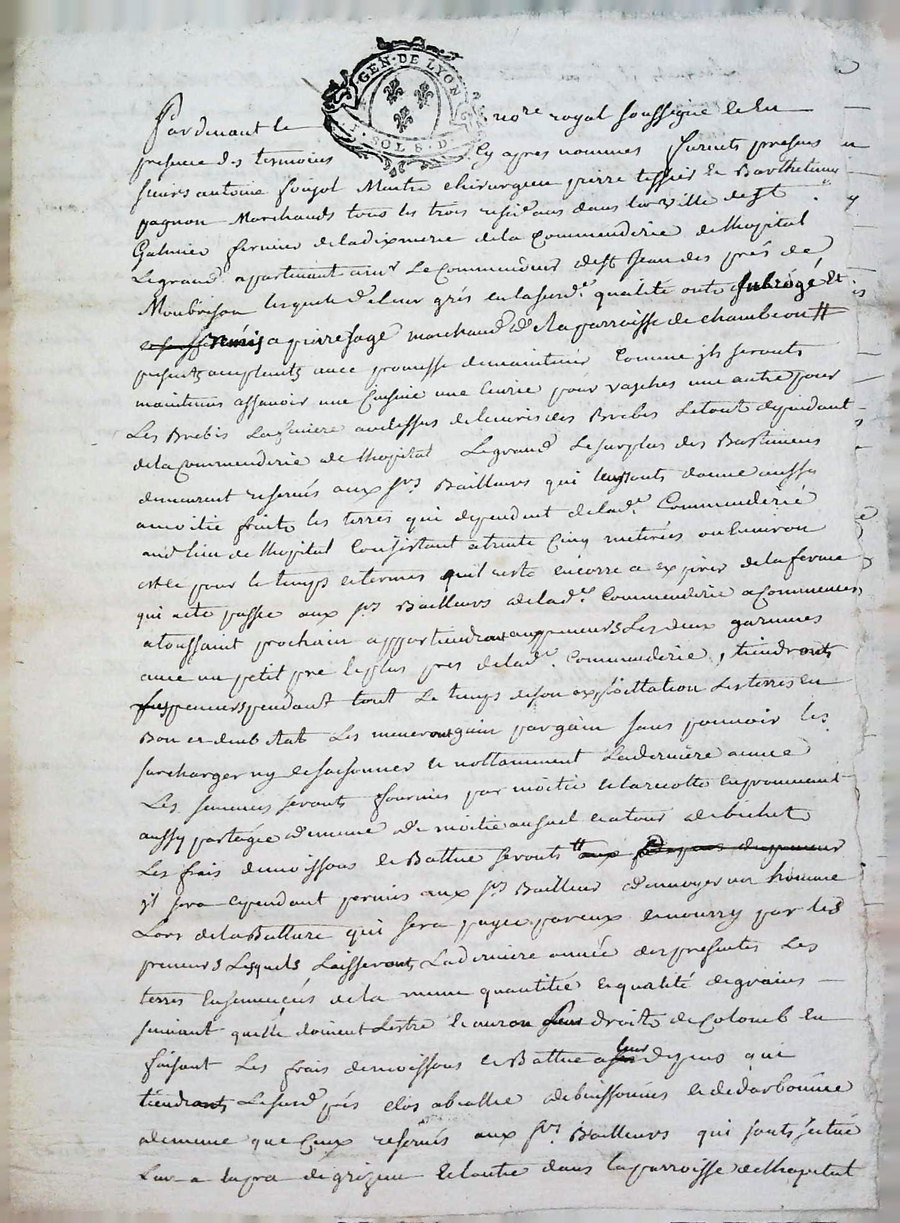 GEN. DE LYON
SOLS. D.
Pardevant le nore royal soussigné et en
presence des temoins cy apres nommés furents presens
sieurs antoine Maitre chirurgien pierre tessier et Barthelemy
pagnon Marchands tous les trois residans dans la ville de st
Galmier fermier de la dixmerie de la Commenderie de lhopital
Legrand apartenant a mr Le Commandeur de st Jean des prés de
Monbrison lesquels de leur grés en la susde qualité onts subrogé et
remis a pierre sage marchand de la parroisse de chambeon #
presents acceptents avec promesse de maintenir comme ils seronts
maintenus assavoir une Cuisine une Ecurie pour vaches une autre pour
Les Brebis La feniere au dessus de lecurie des Brebis Le tout dependant
de la Commenderie de lhopital Legrand Le surplus des Bastimens
demeurent reservés aux srs Bailleurs qui leurs donne aussy
a moitié fruits les terres qui dependent de lade Commenderie
au lieu de lhopital Consistant a trente Cinq meterées ou Environ
et ce pour le temps et termes quil reste encorre a expirer de la ferme
qui a eté passé aux srs Bailleurs de lade Commenderie a Commencer
a toussaint prochain appartiendront aux preneurs Les deux garennes
avec un petit pré le plus pres de lade Commenderie, tiendronts
preneurs pendant tout Le temps de son exploittation Les terres en
Bon et deub etat Les meneront gain par gain sans pouvoir les
surcharger ny desaisonner et nottamment La derniere année
Les semences seronts fournies par moitié et la recolte en provenant
aussy partagée de meme de moitié au et de bichet
Les frais de moisson et Battue seronts # aux depens du preneur
il sera cependant permis aux srs Bailleur d'envoyer un homme
Lors de la Batture qui sera payé par eux et nourry par les
preneurs Lesquels Laisseronts La derniere année des presentes Les
terres Ensemencés de la meme quantitée et qualité de grains
suivant quelle doivent Lestre et auront droits de Colomb en
faisant Les frais de moissons et Battue a leur depens qui
tiendronts Les susd prés clos de buissonnés et de darbounée
de meme que Ceux reservés aux srs Bailleurs qui sonts scitué
Lun a et Lautre dans la parroisse de lhopital